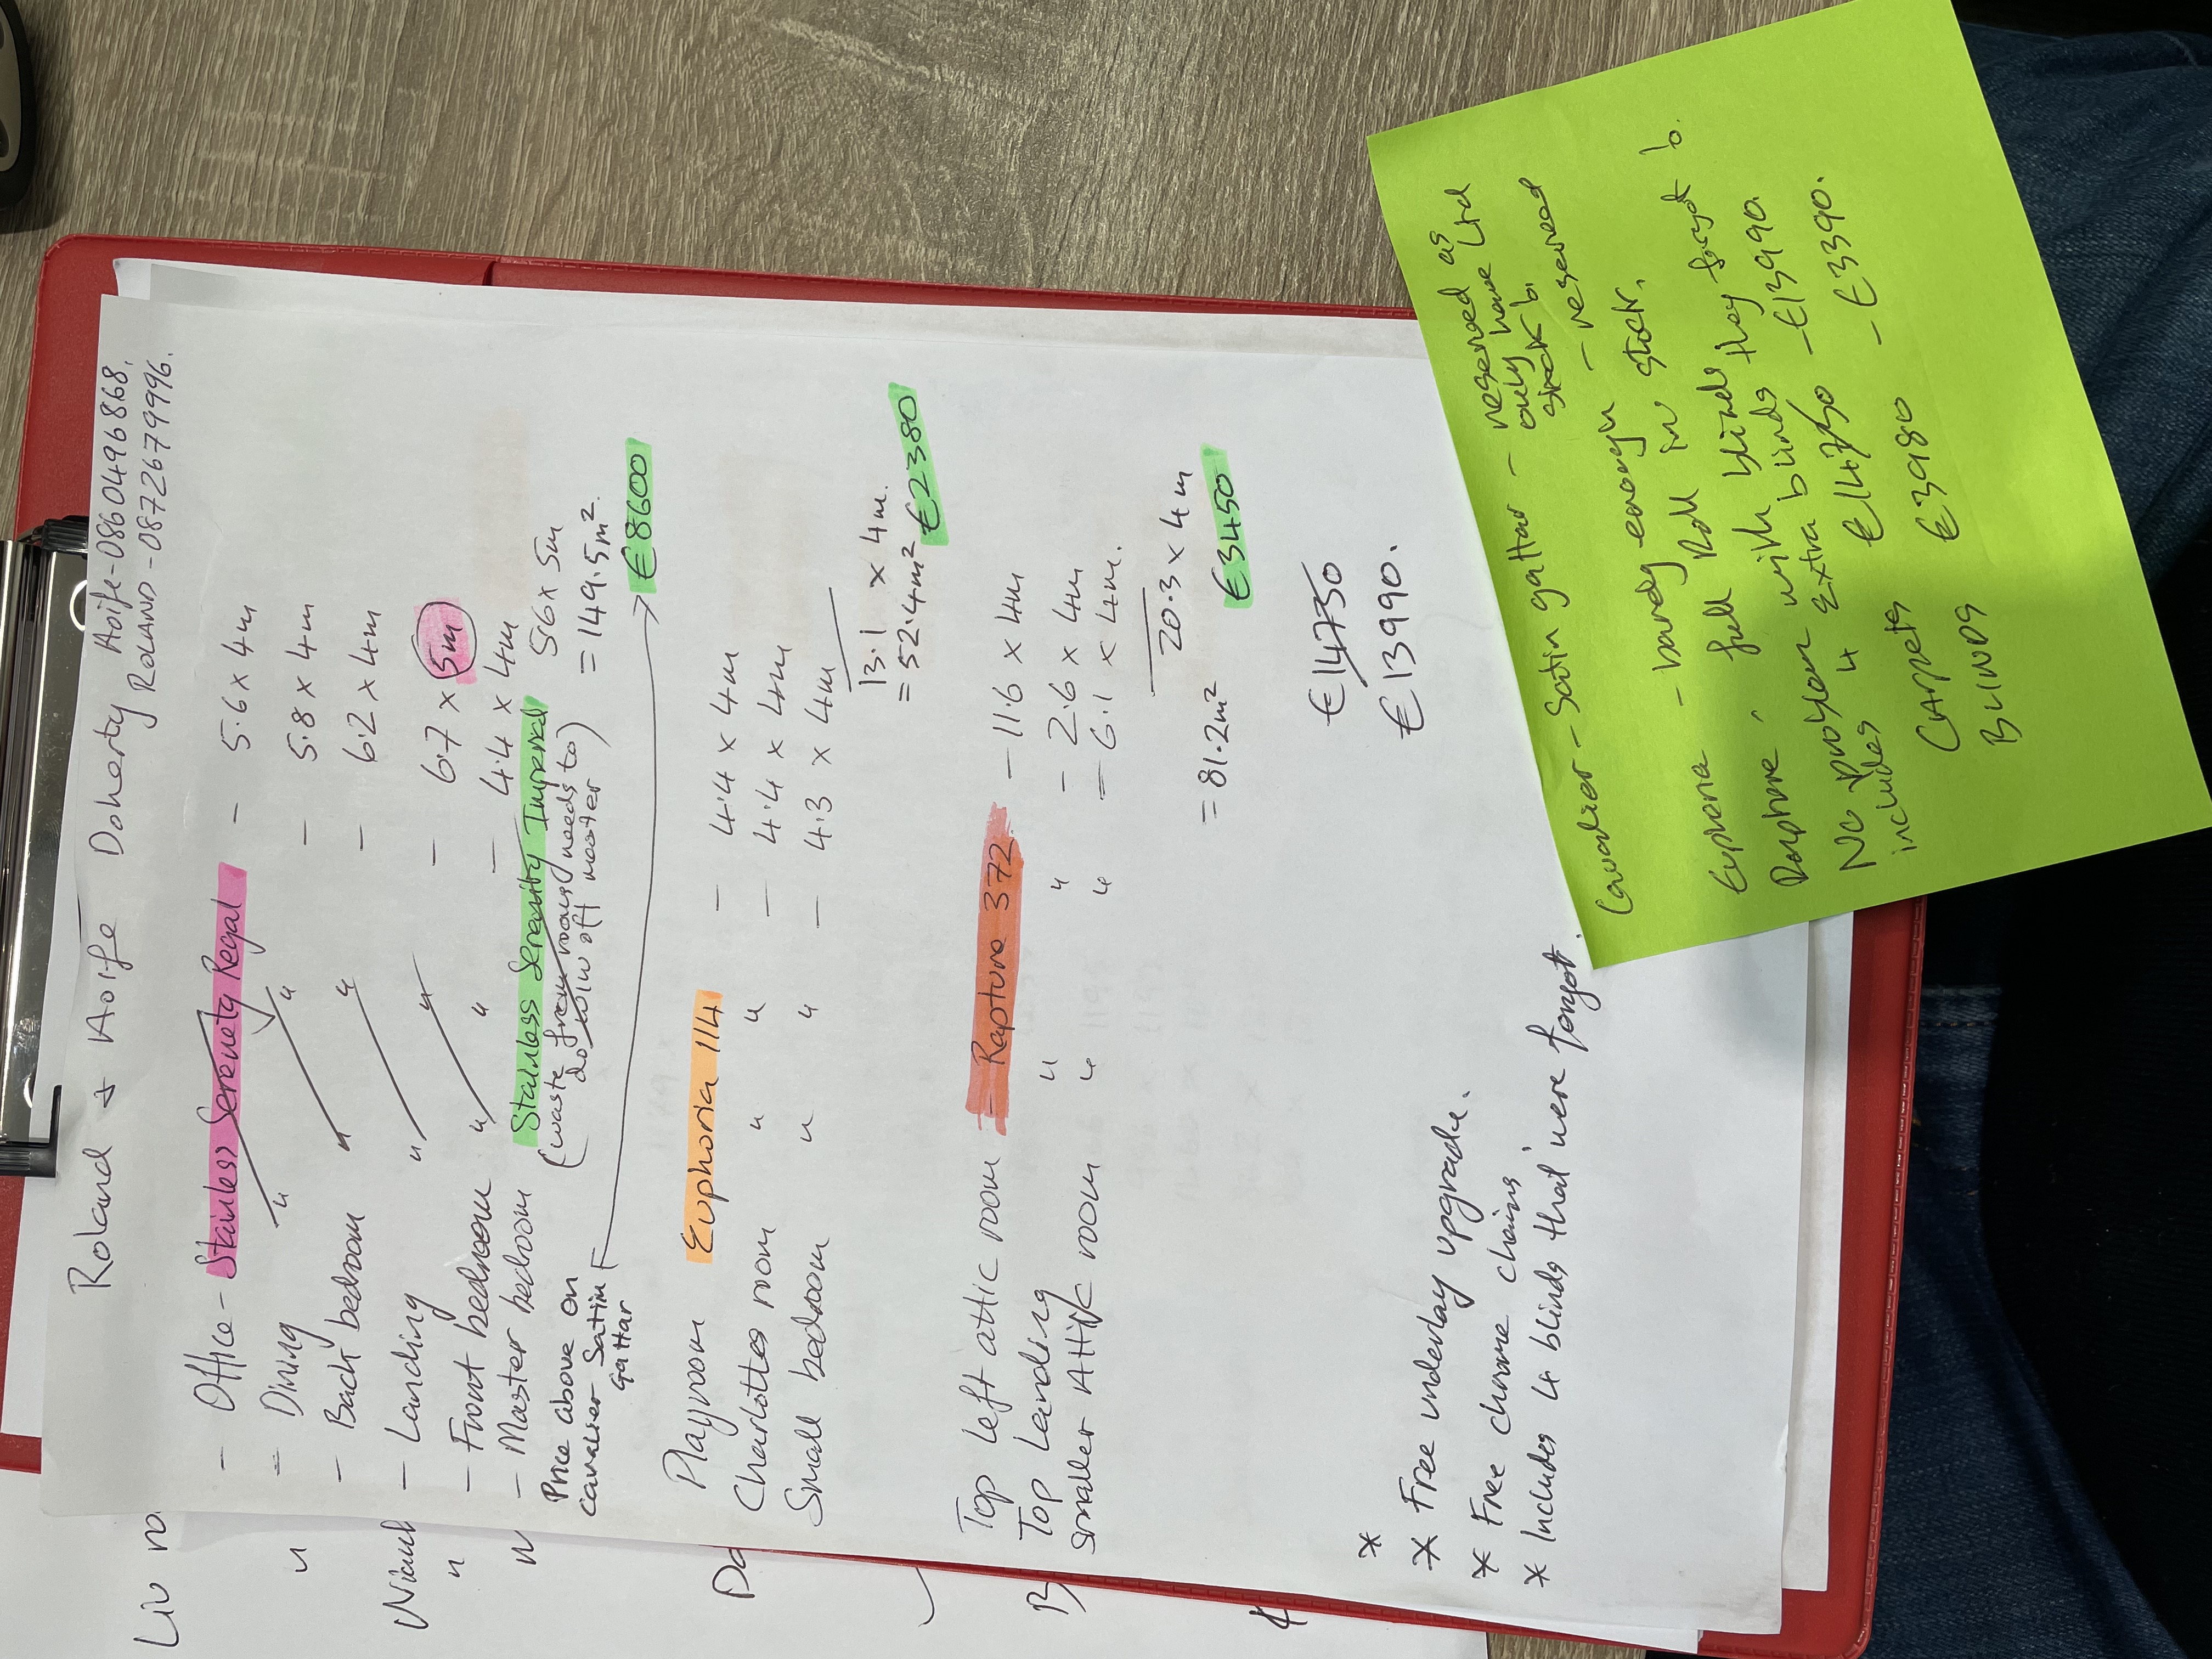 Roland & Aoife Doherty Aoife-0860496868.
ROLAND-0872679996.
- Office - Stainless Serenety Regal - 5.6 x 4m
- Dining " " - 5.8 x 4m
- Back bedroom " " - 6.2 x 4m
- Landing " " - 6.7 x 5m
- Front bedroom " " - 4.4 x 4m
- Master bedroom Stainless Serenity Imperial 5.6 x 5m
(waste from rooms needs to = 149.5m²
do w/w off master)
Price above on
cavalier Satin
gattar
€8600
Playroom Euphoria 114 - 4.4 x 4m
Charlottes room " " - 4.4 x 4m
Small bedroom " " - 4.3 x 4m
13.1 x 4m.
= 52.4m² €2380
Top left attic room - Rapture 372 - 11.6 x 4m
Top Landing " " - 2.6 x 4m
smaller Attic room " " - 6.1 x 4m.
20.3 x 4m
= 81.2m² €3450
€14730
€13990.
*
* Free underlay upgrade.
* Free chrome chains
* Includes 4 blinds that were forgot.
Liv
"
"
"
Cavalier - Satin gattar - reserved as
only have Ltd
stock b.
- barely enough - reserved
Euphoria
Rapture, full Roll in stock.
No problem with blinds they forgot b.
includes 4 extra blinds - €13990.
€14730
CARPETS - €3390.
BLINDS €3980